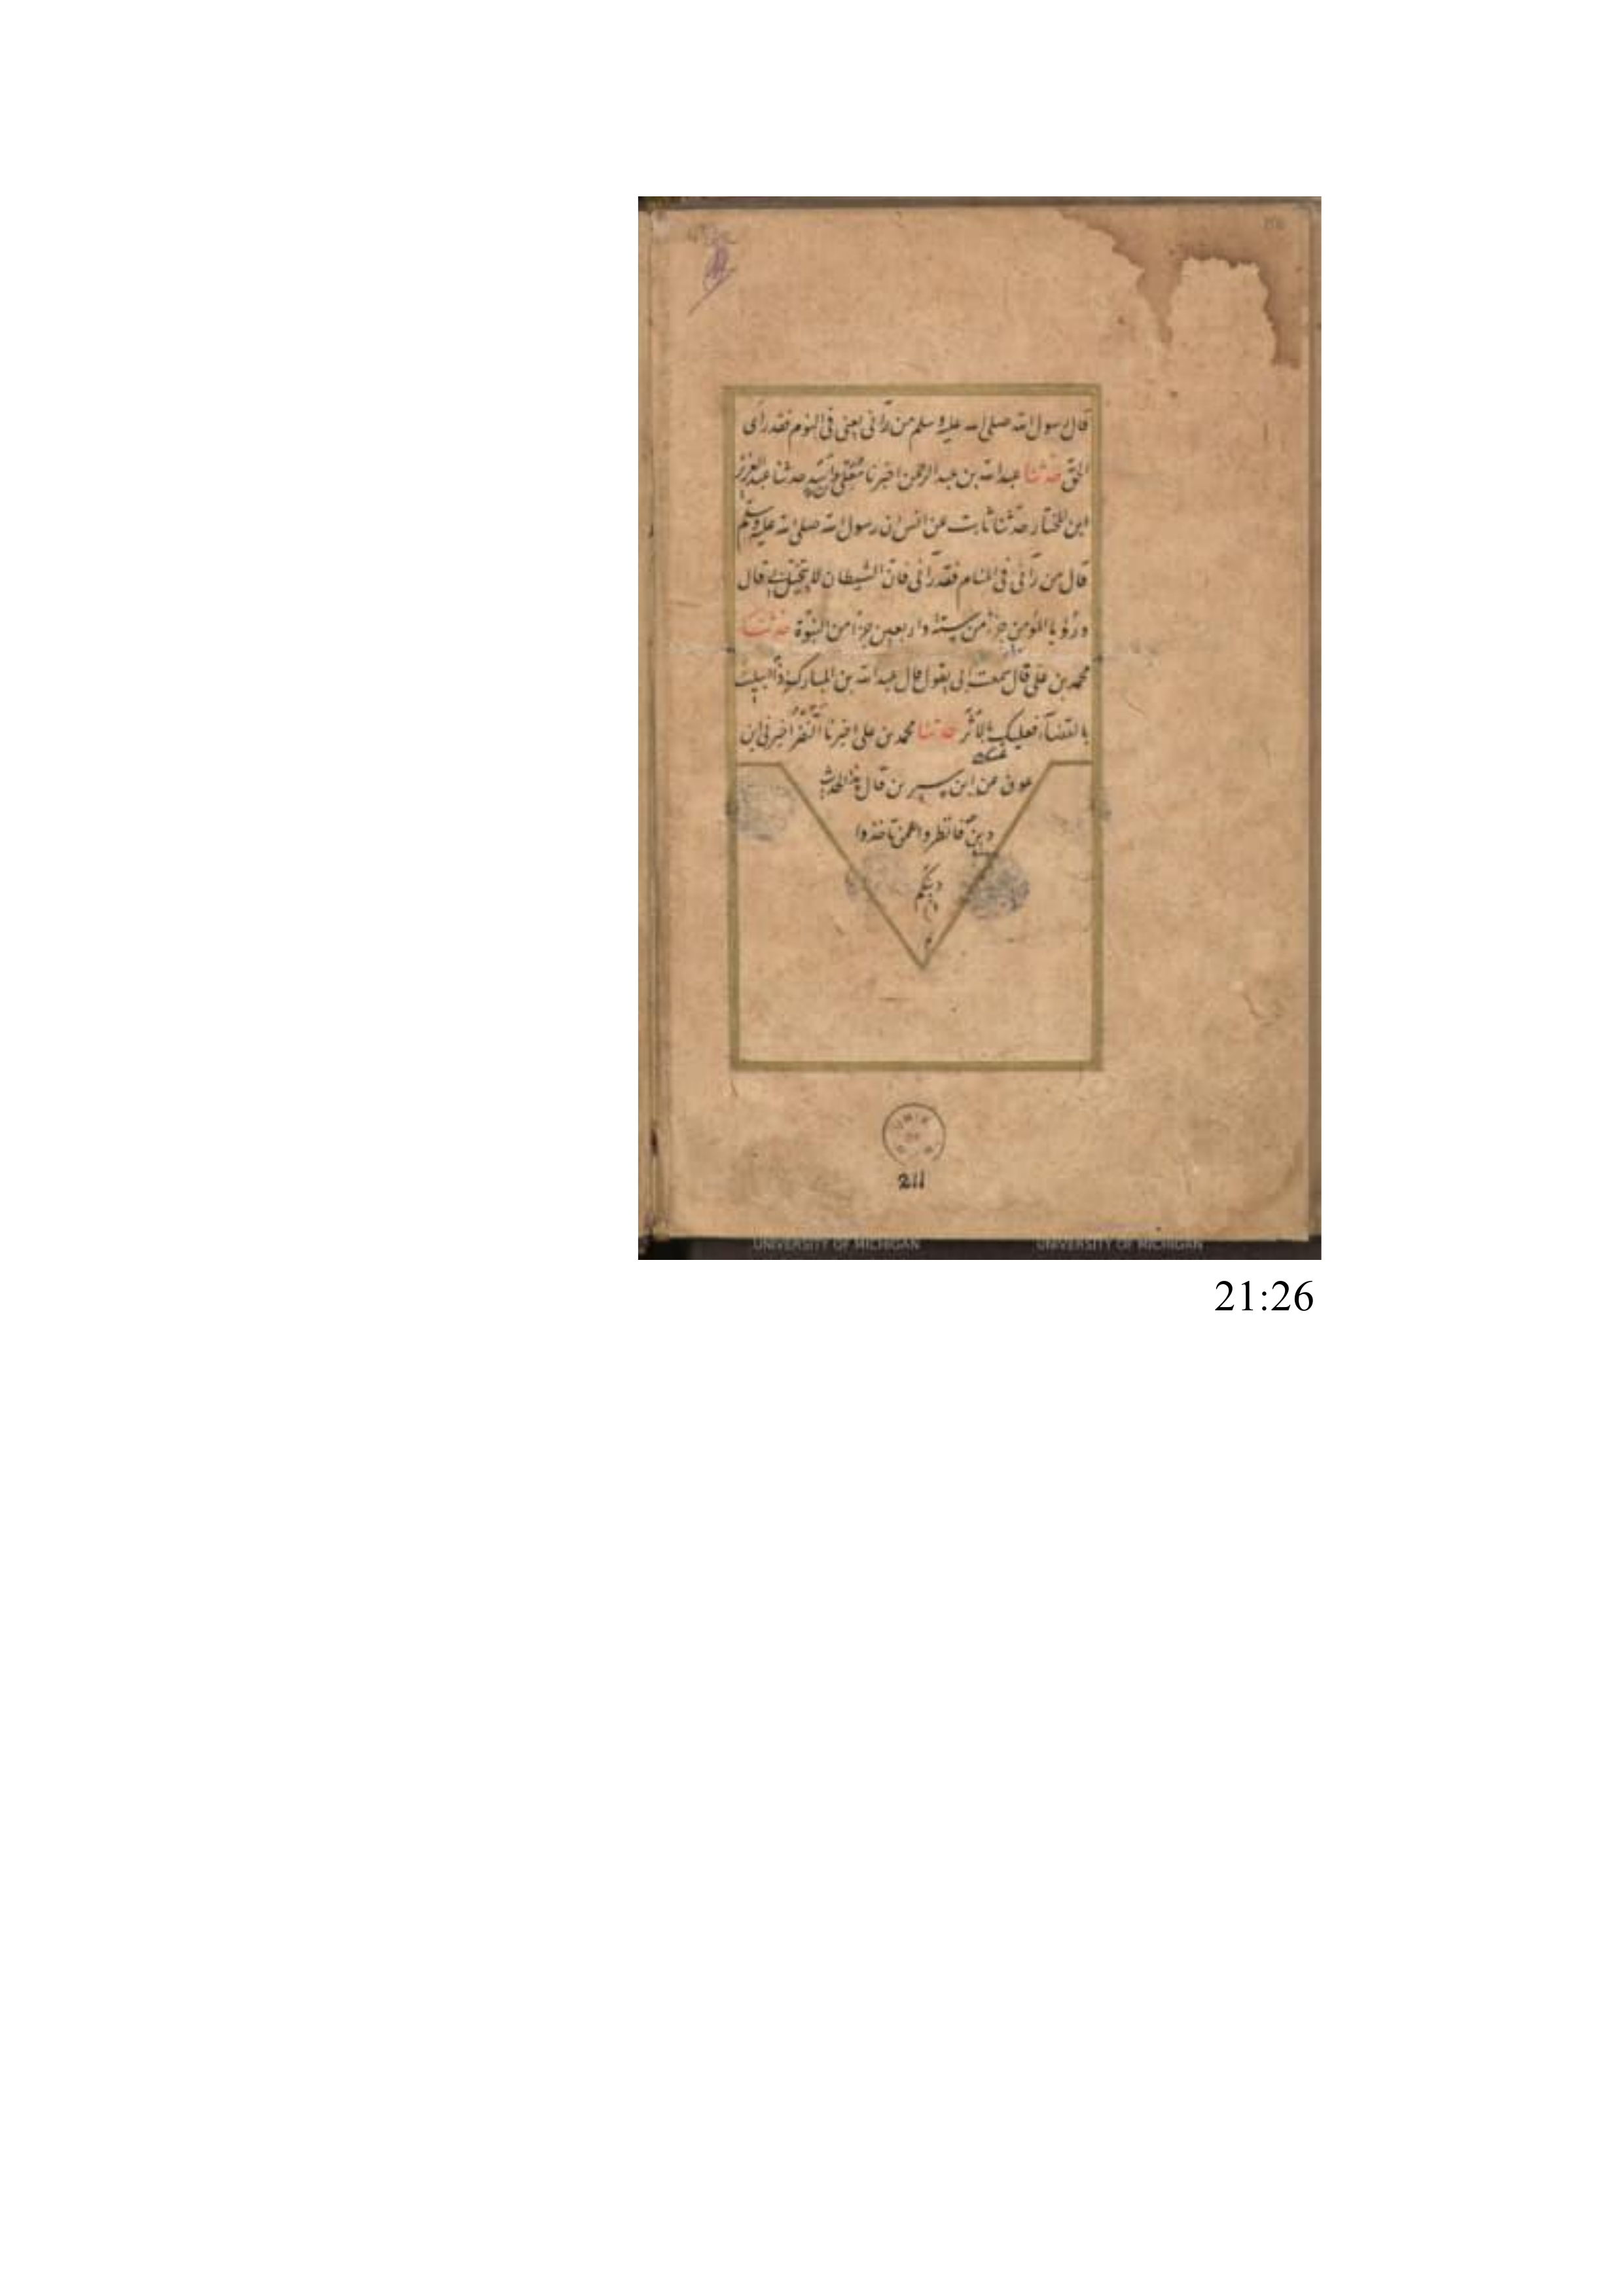 قال رسول الله صلى الله عليه وسلم من رآنى يعنى فى النوم فقد راى
الحق حدثنا عبد الله بن عبد الرحمن اخبرنا معلى بن اسد حدثنا عبد العزيز
ابن المختار حدثنا ثابت عن انس ان رسول الله صلى الله عليه وسلم
قال من رآنى فى المنام فقد رآنى فان الشيطان لا يتخيل بى قال
ورؤيا المؤمن جزء من ستة واربعين جزءا من النبوة حدثنا
محمد بن على قال سمعت ابى يقول قال عبد الله بن المبارك اذا ابتليت
بالقضاء فعليك بالاثر حدثنا محمد بن على اخبرنا النضر اخبرنى ابن
عون عن ابن سيرين قال هذا الحديث
دين فانظروا عمن تاخذوا
دينكم
م
211
UNIVERSITY OF MICHIGAN UNIVERSITY OF MICHIGAN
21:26